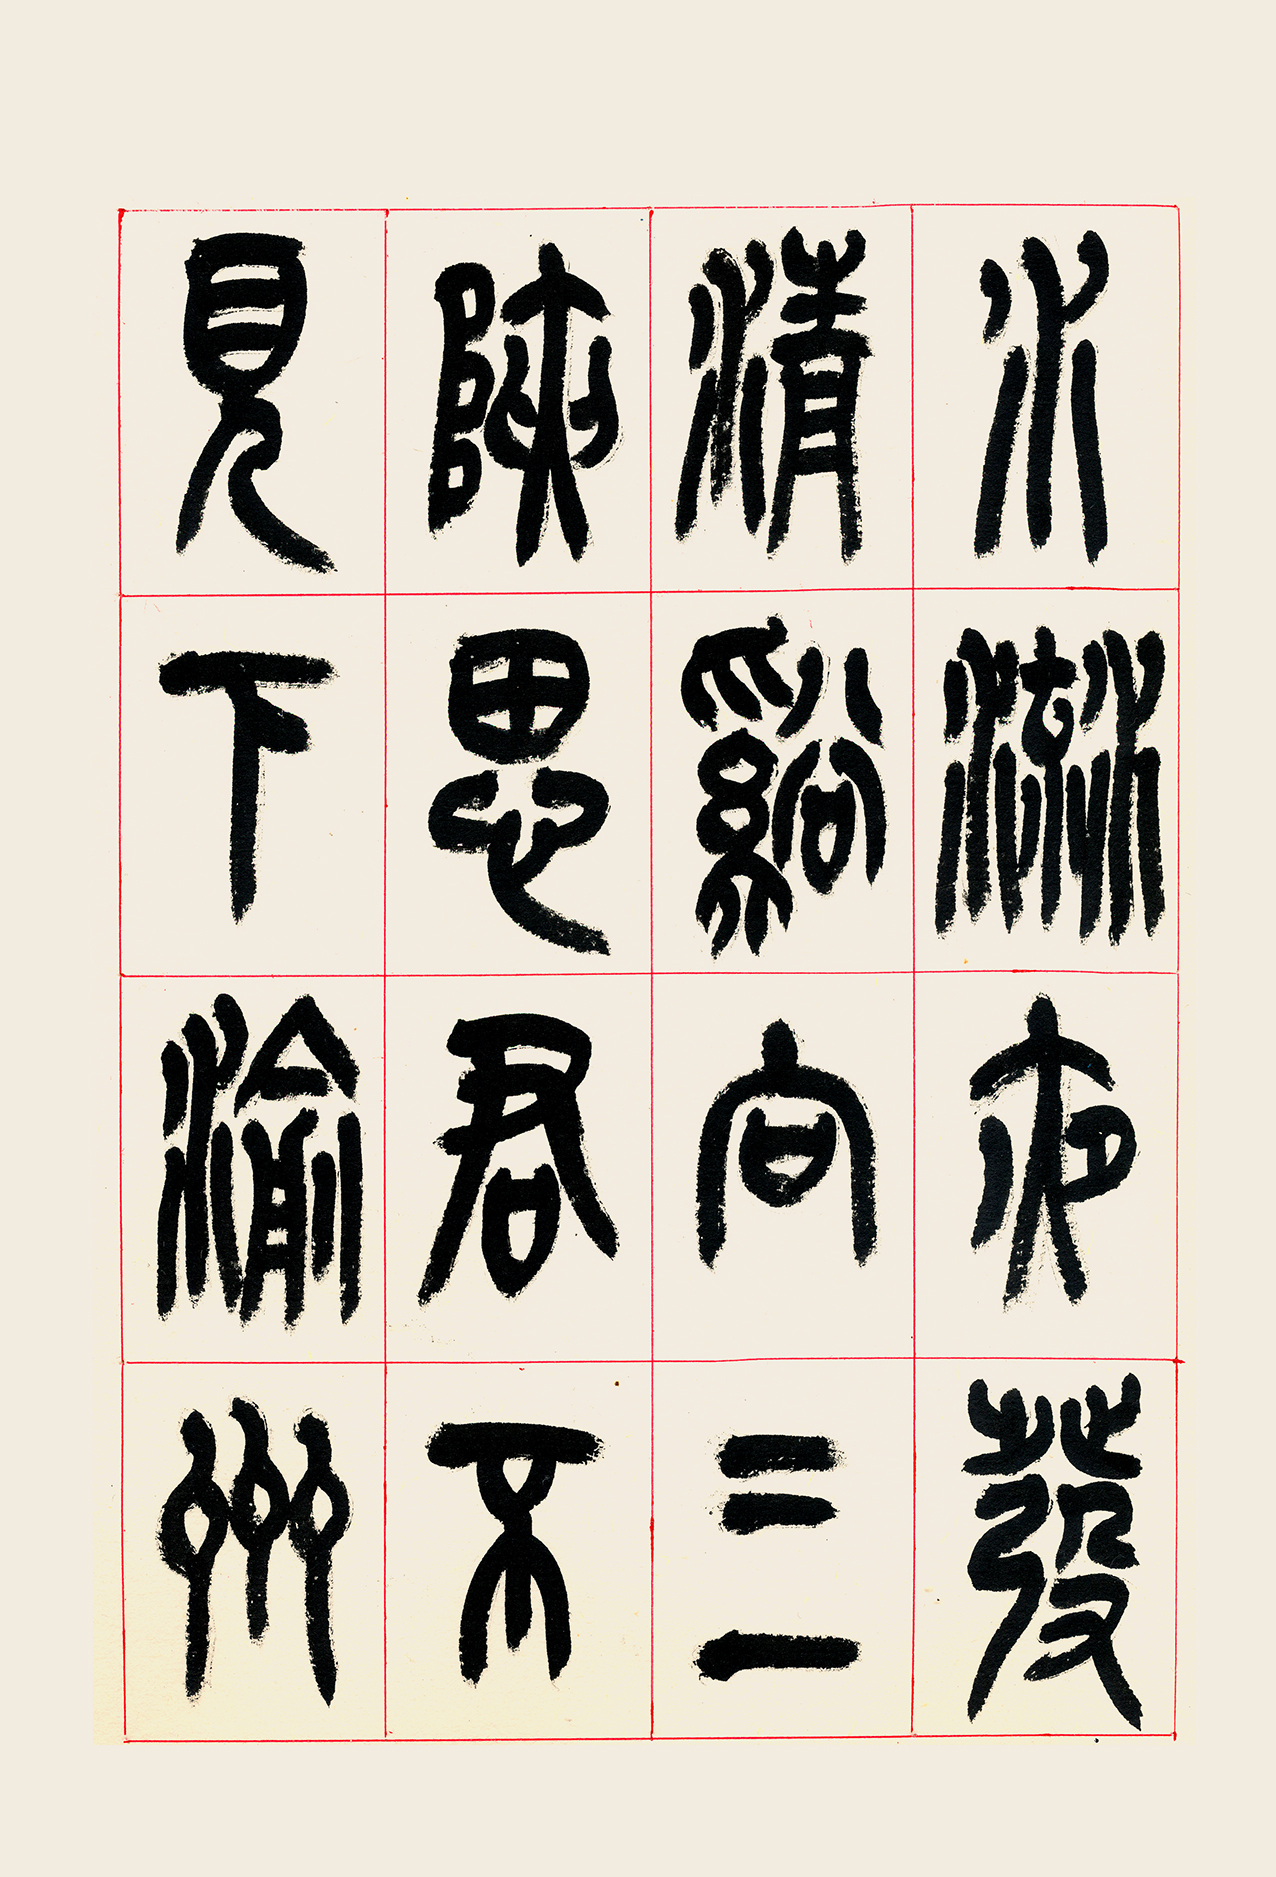 水流夜發
清谿向三
陜思君不
見下渝州